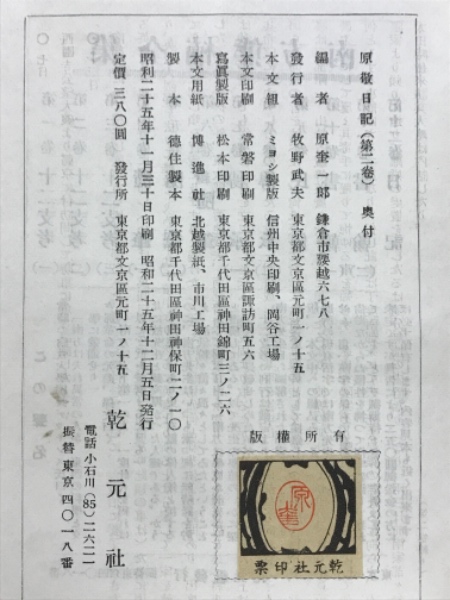 原敬日記（第二卷）　奥付
編者　原奎一郎　鎌倉市腰越六七八
發行者　牧野武夫　東京都文京區元町一ノ十五
本文組　ミヨシ製版　信州中央印刷、岡谷工場
本文印刷　常磐印刷　東京都文京區諏訪町五六
寫眞製版　松本印刷　東京都千代田區神田錦町三ノ二六
本文用紙　博進社　北越製紙、市川工場
製本　德住製本　東京都千代田區神田神保町二ノ一〇
昭和二十五年十一月三十日印刷　昭和二十五年十二月五日発行
定價　三八〇圓　發行所　東京都文京區元町一ノ十五
乾元社
電話　小石川（85）二六二一
振替東京　四〇一八番
版權所有
原奎
票印社元乾